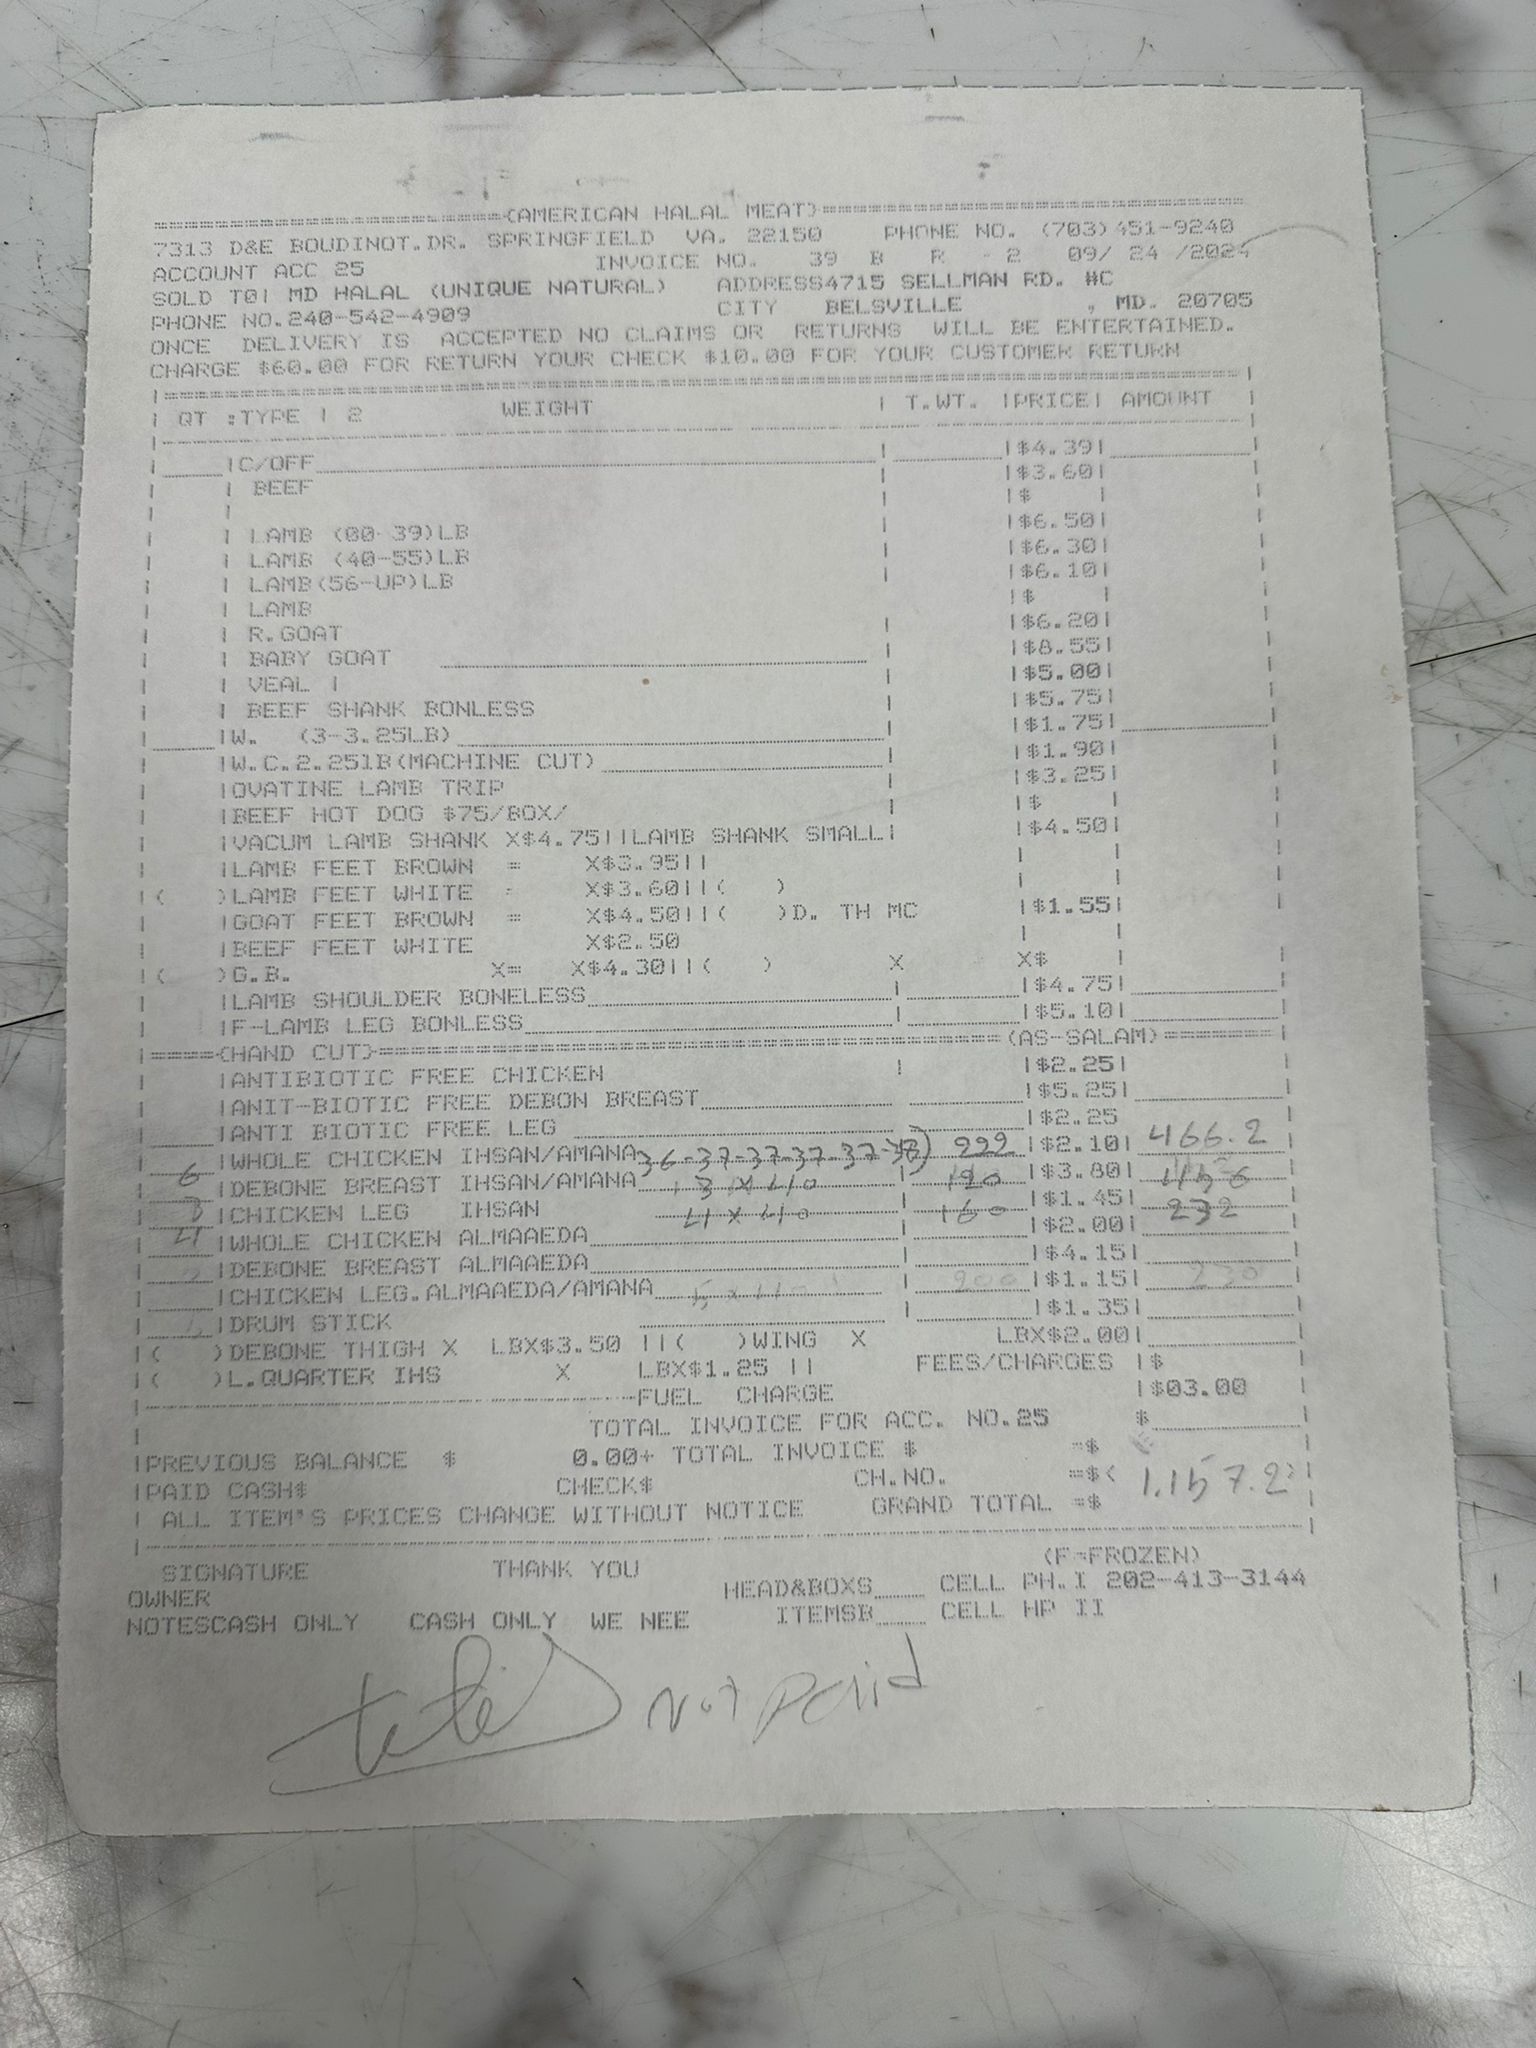 (AMERICAN HALAL MEAT)
7313 D&E BOUDINOT.DR. SPRINGFIELD VA. 22150 PHONE NO. (703)451-9240
ACCOUNT ACC 25 INVOICE NO. 39 B R - 2 09/ 24 /2024
SOLD TO| MD HALAL (UNIQUE NATURAL) ADDRESS4715 SELLMAN RD. #C
PHONE NO.240-542-4909 CITY BELSVILLE , MD. 20705
ONCE DELIVERY IS ACCEPTED NO CLAIMS OR RETURNS WILL BE ENTERTAINED.
CHARGE $60.00 FOR RETURN YOUR CHECK $10.00 FOR YOUR CUSTOMER RETURN
QT :TYPE | 2 WEIGHT | T.WT. |PRICE| AMOUNT
|C/OFF |$4.39|
| BEEF |$3.60|
| |$ |
| LAMB (00-39)LB |$6.50|
| LAMB (40-55)LB |$6.30|
| LAMB(56-UP)LB |$6.10|
| LAMB |$ |
| R.GOAT |$6.20|
| BABY GOAT |$8.55|
| VEAL | |$5.00|
| BEEF SHANK BONLESS |$5.75|
|W. (3-3.25LB) |$1.75|
|W.C.2.25lB(MACHINE CUT) |$1.90|
|OVATINE LAMB TRIP |$3.25|
|BEEF HOT DOG $75/BOX/ |$ |
|VACUM LAMB SHANK X$4.75||LAMB SHANK SMALL| |$4.50|
|LAMB FEET BROWN = X$3.95||
|( )LAMB FEET WHITE - X$3.60||( )
|GOAT FEET BROWN = X$4.50||( )D. TH MC |$1.55|
|BEEF FEET WHITE X$2.50
|( )G.B. X= X$4.30||( ) X X$ |
|LAMB SHOULDER BONELESS |$4.75|
|F-LAMB LEG BONLESS |$5.10|
(HAND CUT) (AS-SALAM)
|ANTIBIOTIC FREE CHICKEN |$2.25|
|ANIT-BIOTIC FREE DEBON BREAST |$5.25|
|ANTI BIOTIC FREE LEG |$2.25
6 |WHOLE CHICKEN IHSAN/AMANA 36-37-37-37-37-38) 222 |$2.10| 466.2
3 |DEBONE BREAST IHSAN/AMANA 3 x 40 120 |$3.80| 456
4 |CHICKEN LEG IHSAN 4 x 40 160 |$1.45| 232
|WHOLE CHICKEN ALMAAEDA |$2.00|
|DEBONE BREAST ALMAAEDA |$4.15|
|CHICKEN LEG.ALMAAEDA/AMANA |$1.15|
|DRUM STICK |$1.35|
|( )DEBONE THIGH X LBX$3.50 ||( )WING X LBX$2.00|
|( )L.QUARTER IHS X LBX$1.25 || FEES/CHARGES |$
FUEL CHARGE |$03.00
TOTAL INVOICE FOR ACC. NO.25 $
|PREVIOUS BALANCE $ 0.00+ TOTAL INVOICE $ =$
|PAID CASH$ CHECK$ CH.NO. =$( )
| ALL ITEM'S PRICES CHANGE WITHOUT NOTICE GRAND TOTAL =$ 1.157.2
SIGNATURE THANK YOU (F-FROZEN)
OWNER HEAD&BOXS CELL PH.I 202-413-3144
NOTESCASH ONLY CASH ONLY WE NEE ITEMSB CELL HP II
not paid